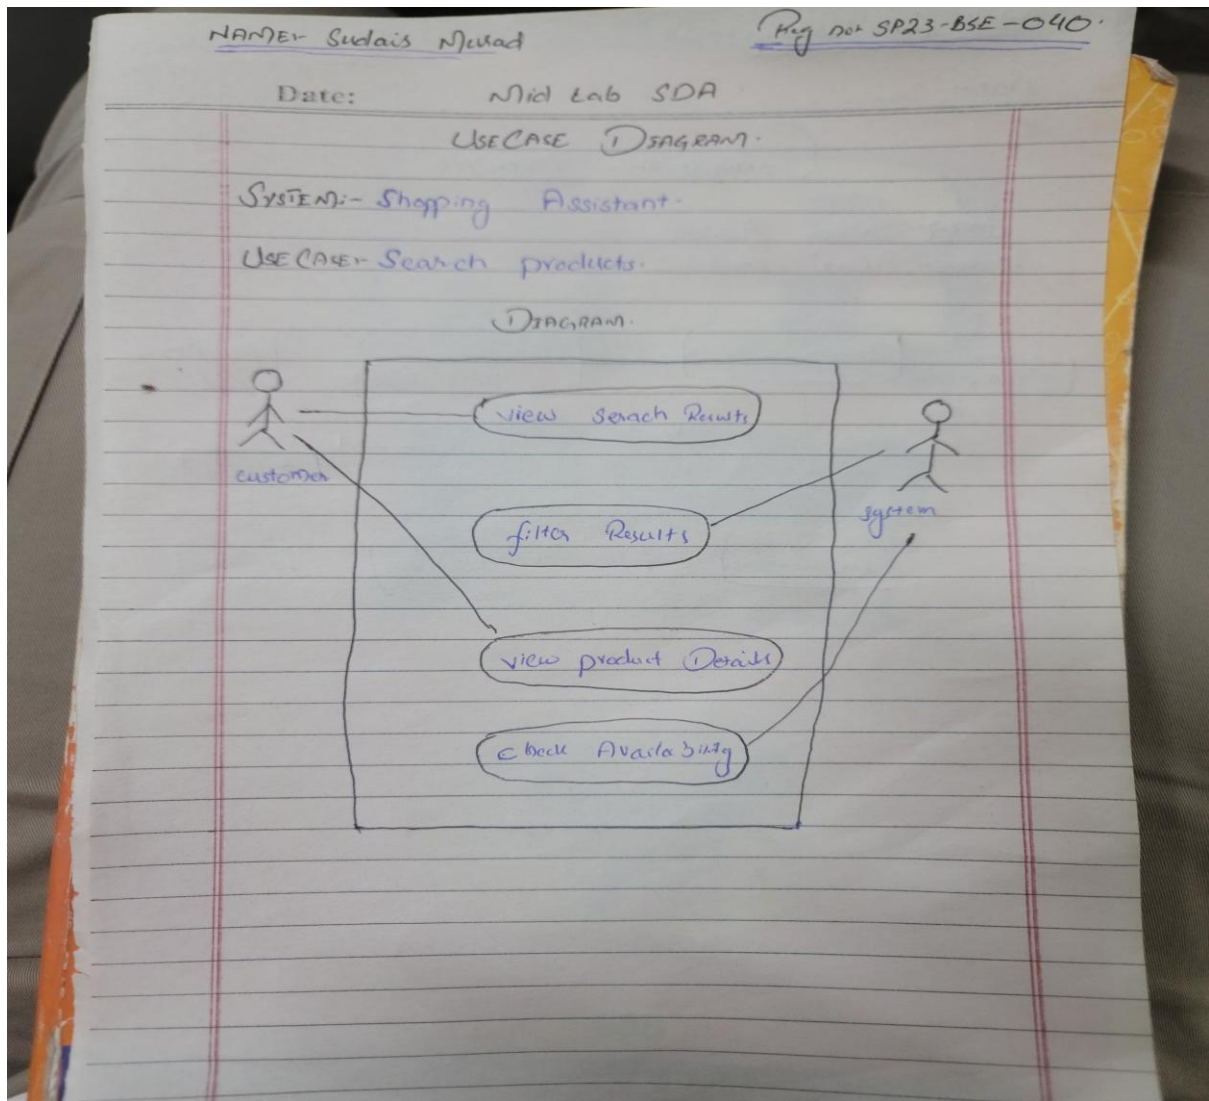 NAME:- Sudais Murad
Reg no:- SP23-BSE-040.
Date:
Mid Lab SDA
USECASE DIAGRAM.
SYSTEM:- Shopping Assistant.
USECASE:- Search products.
DIAGRAM.
view Serach Results
customer
system
filter Results
view product Details
check Availability